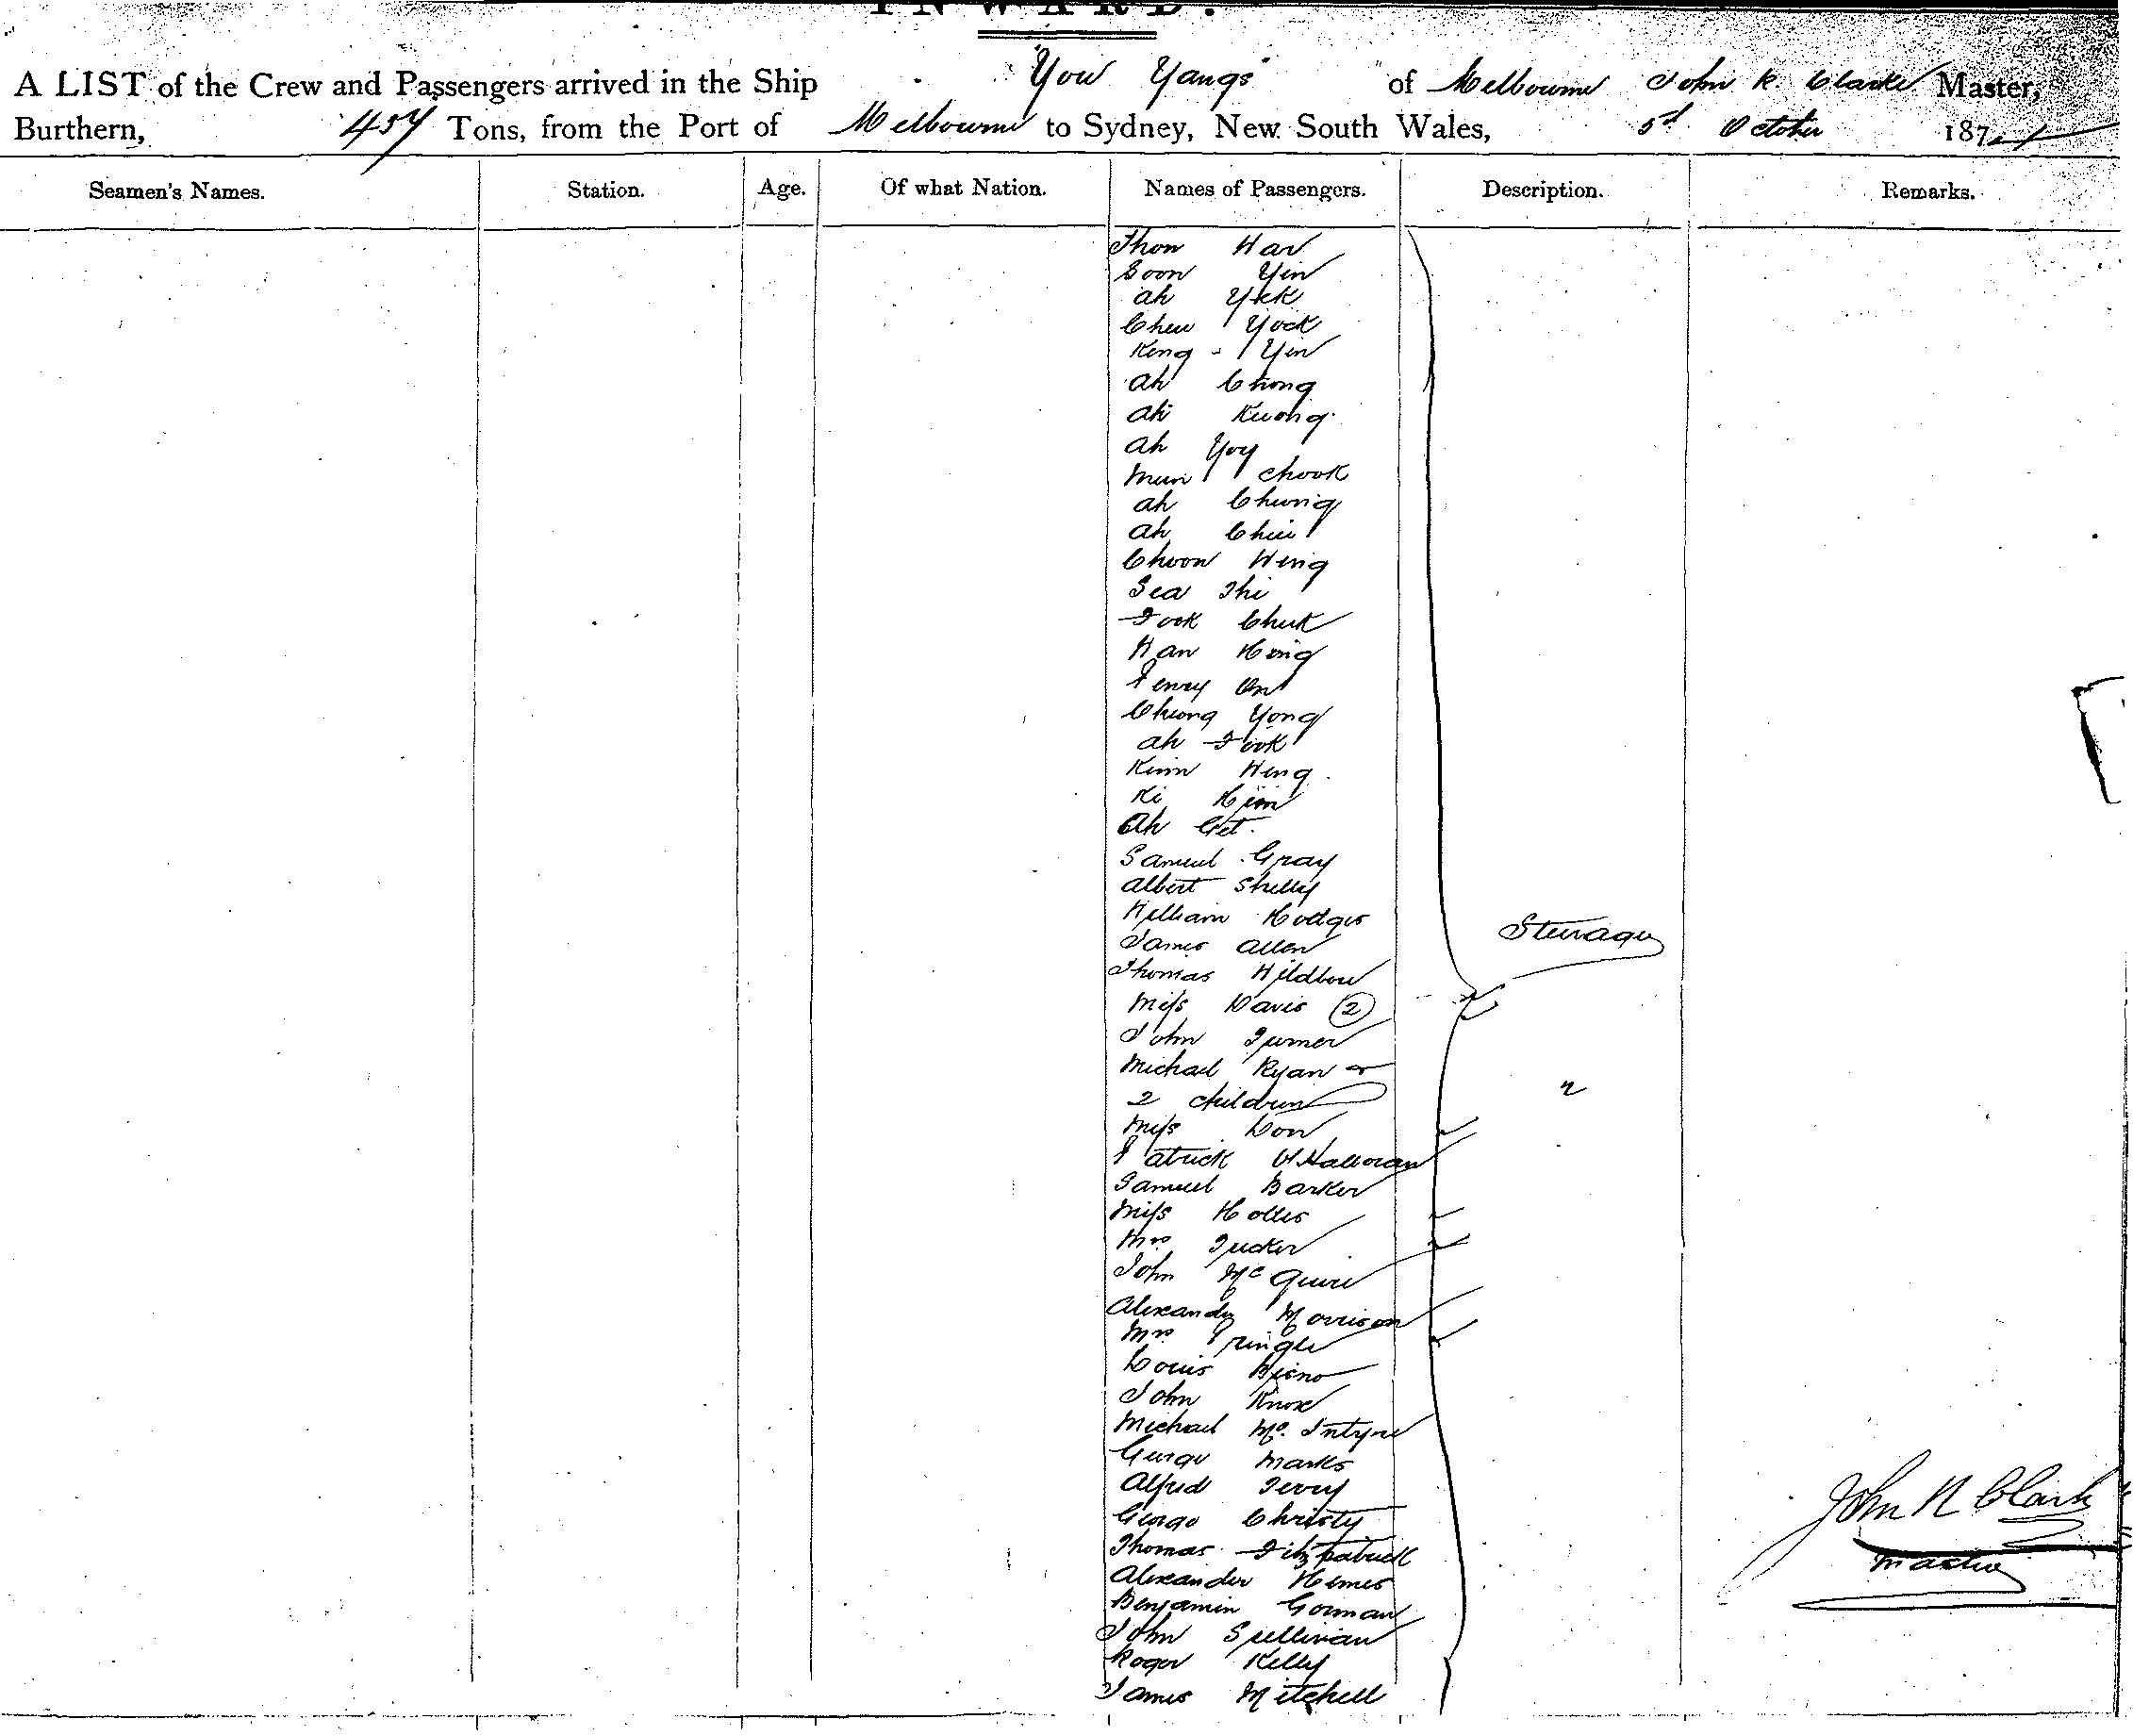 INWARD.
A LIST of the Crew and Passengers arrived in the Ship "You Yangs" of Melbourne John R. Clarke Master,
Burthern, 457 Tons, from the Port of Melbourne to Sydney, New South Wales, 5th October 1874
Seamen's Names. Station. Age. Of what Nation. Names of Passengers. Description. Remarks.
Thon War
Soon Yin
Ah Yick
Chew Yock
King Yin
Ah Chong
Ah Kwong
Ah Yoy
Mun Chook
Ah Chung
Ah Chin
Choon Wing
Sea Thi
Fook Chuk
Wan Hing
Penry On
Cheong Yong
Ah Fook
Kinn Wing
Ki Him
Ah Get
Samuel Gray
Albert Shelly
William Hodges
James Allen
Steerage
Thomas
Miss Davis (2)
John Turner
Michael Ryan &
2 children "
Miss Low
Patrick O'Halloran
Samuel Barker
Miss Holles
Mrs Tucker
John McGuire
Alexander Morrison
Mrs Pringle
Louis
John Knox
Michael McIntyre
George Marks
Alfred Terry
George Christy
John R Clark
Thomas Fitzpatrick
Master
Alexander Hemes
Benjamin Gorman
John Sullivan
Roger Kelly
James Mitchell